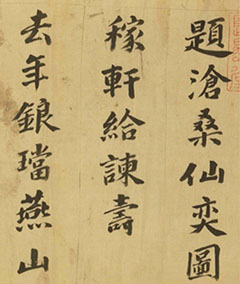 題滄桑仙奕圖
稼軒給諫壽
去年銀璫燕山